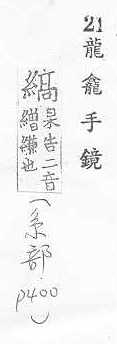 21 龍龕手鏡
縞 杲告二音
繒縑也
(糸部 p400)